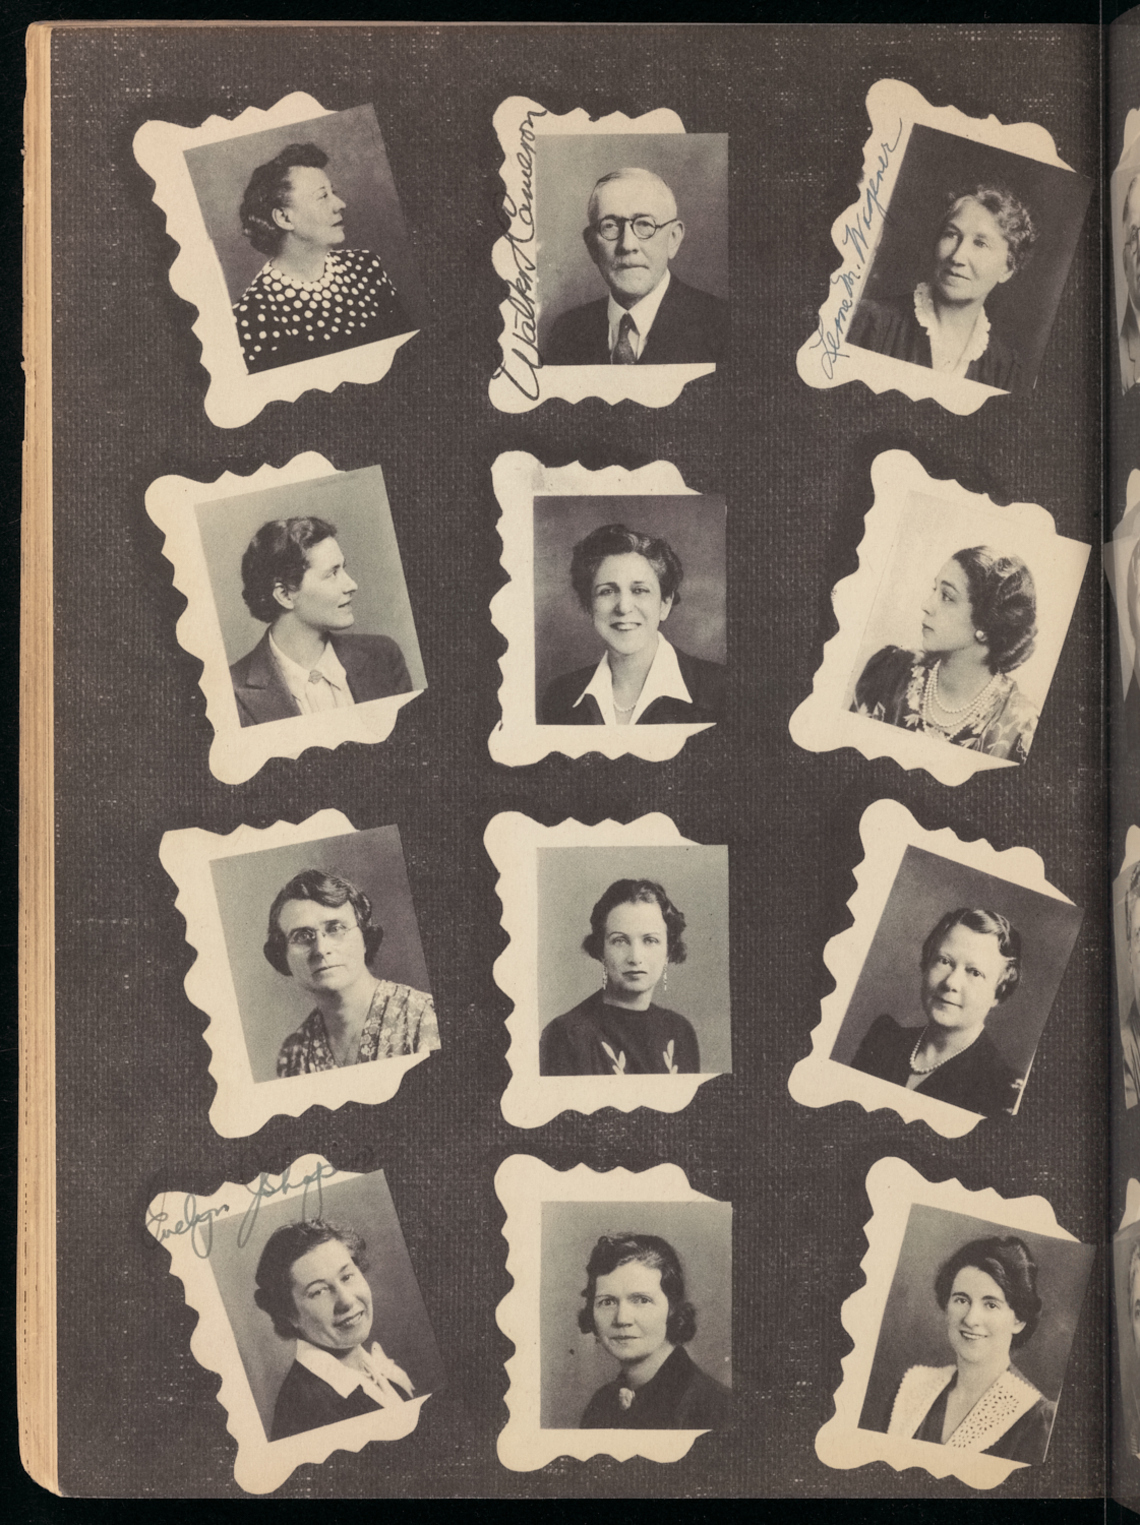 Walter H Cameron
Lerne M. Wagener
Evelyn Jshap